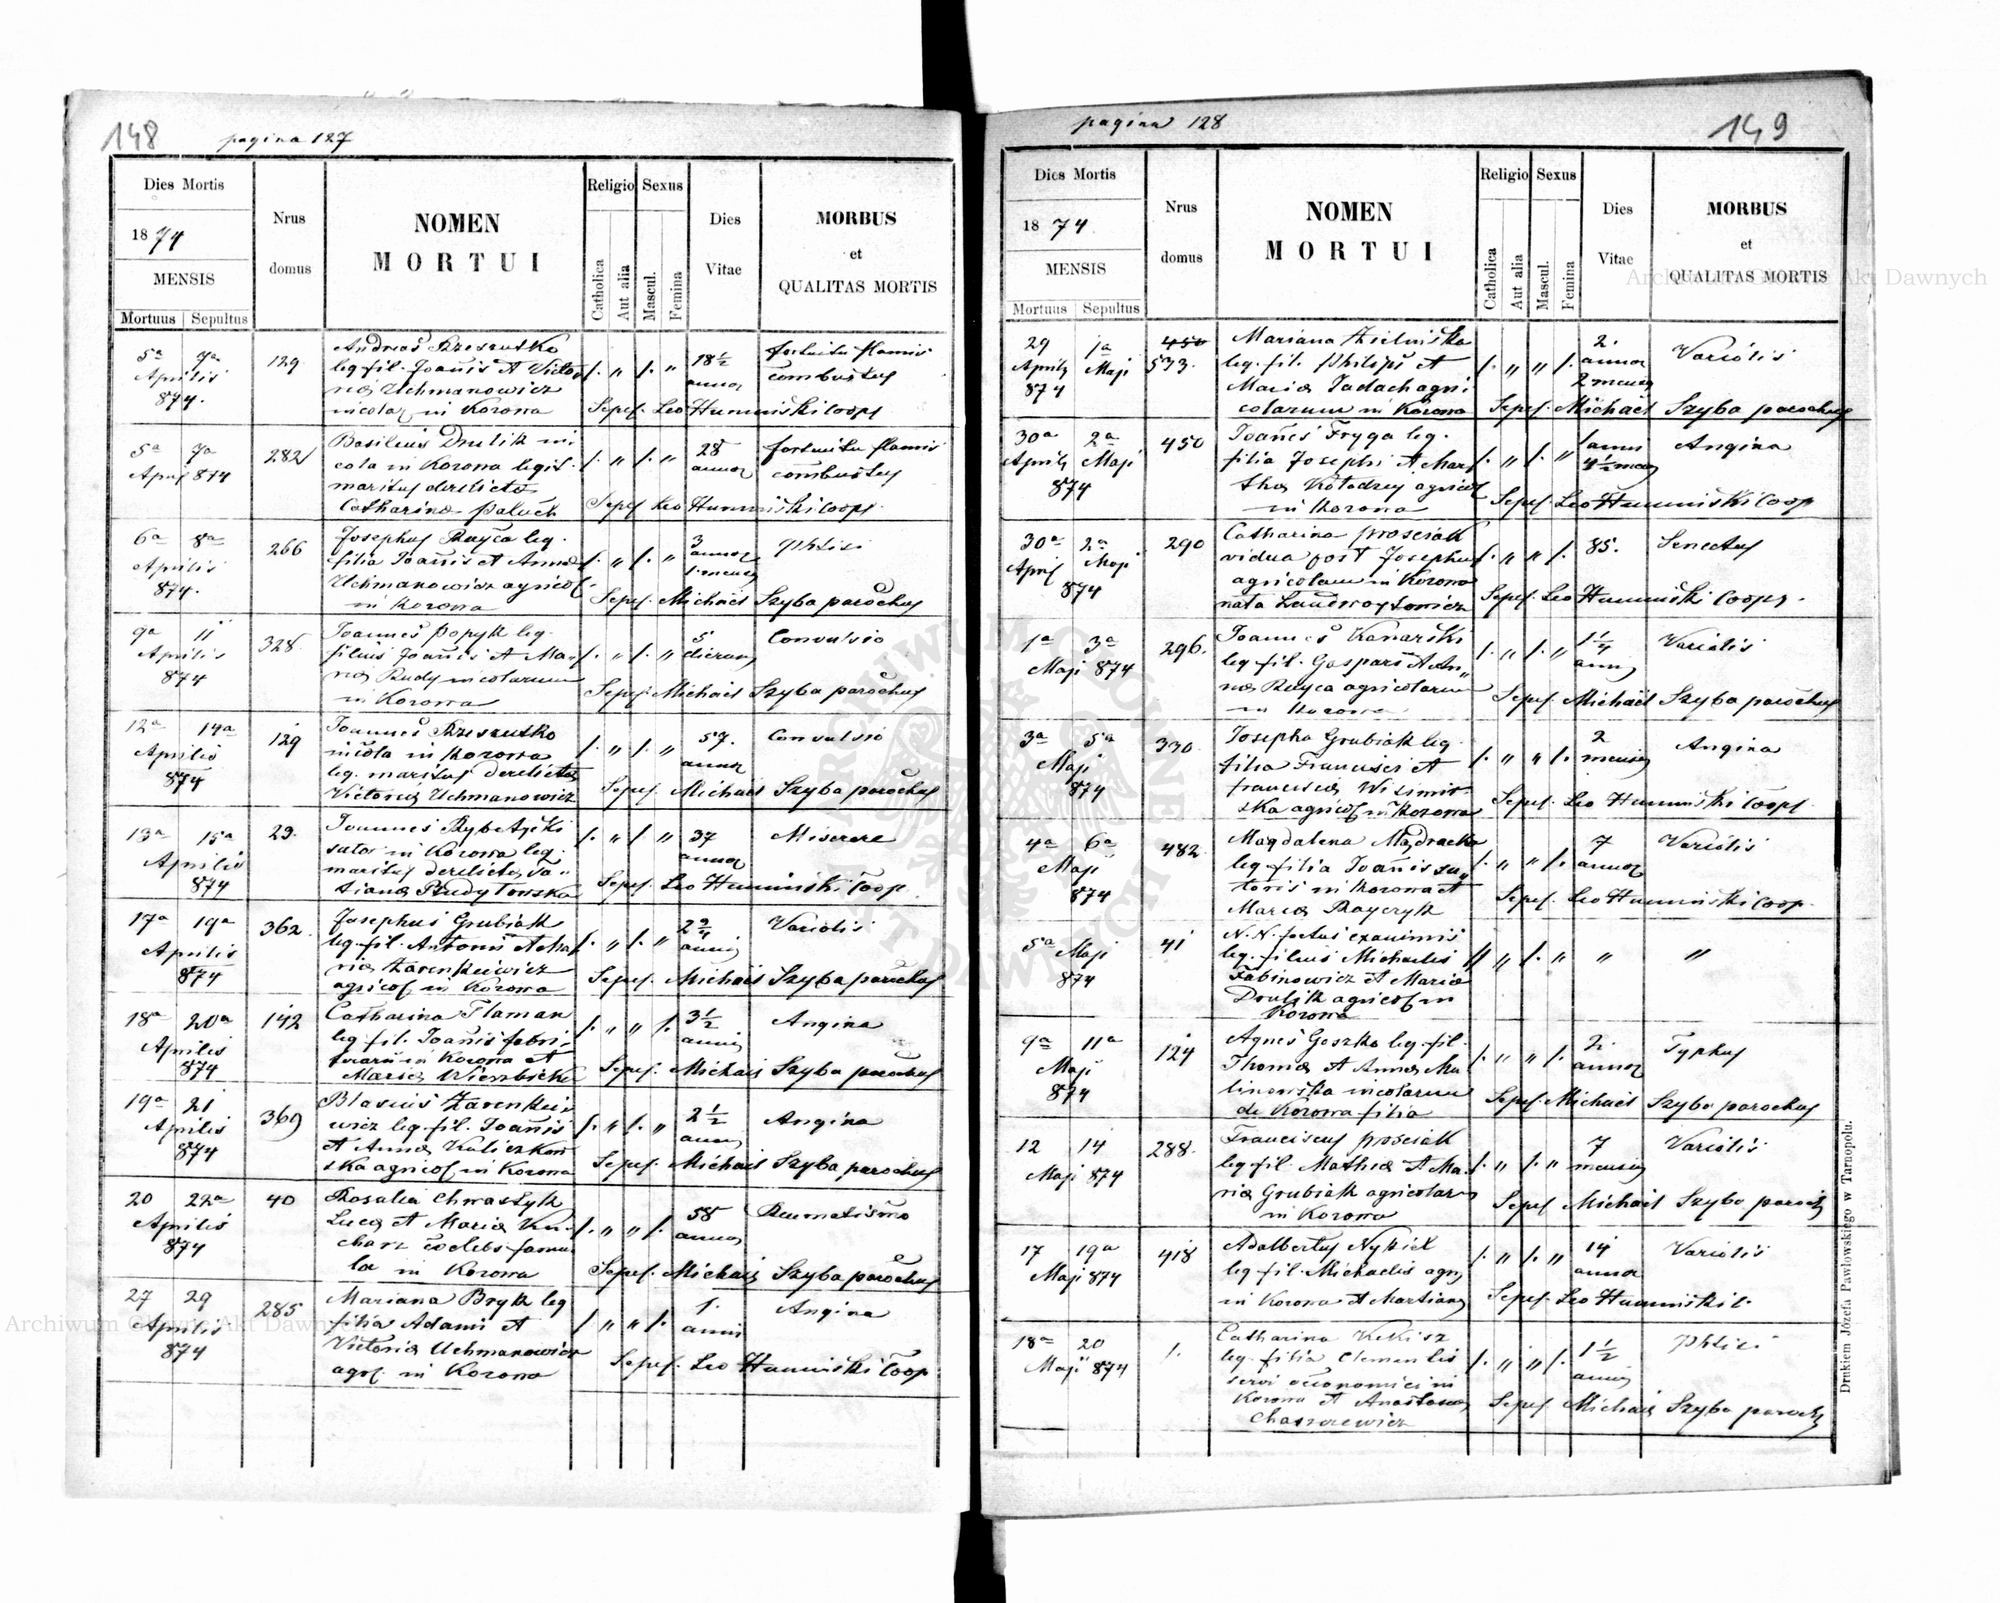 148
pagina 127
Dies Mortis
1874
MENSIS
Mortuus Sepultus
Nrus domus
NOMEN
MORTUI
Religio
Catholica
Aut alia
Sexus
Mascul.
Femina
Dies
Vitae
MORBUS
et
QUALITAS MORTIS
5a 7a
Aprilis
874.
129.
Andreas Rzeszutko
leg. fil. Joañis et Victo
Uchmanowicz
in Korowa
18 1/2
annor
fortuitu flamis
combustus
Sepel. Leo Humiński Coop.
5a 7a
April 874
282
Basilius Drulik in
cola in Korowa legit.
maritus derelicta
Catharina Paluch
28
annor
fortuitu flamis
combustus
Sepel. Leo Humiński Coop.
6a 8a
Aprilis
874.
266
Josephus Rayca leg.
filia Joañis et Anna
Uchmanowicz agricol.
in Korowa
3
annor
Phtisi
Sepel. Michael Szyba parochus
9a 11
Aprilis
874
328.
Joannes Popyk leg.
filius Joañis et Ma
Rudy incolarum
in Korowa
5
dierum
Convulsio
Sepel. Michael Szyba parochus
12a 14a
Aprilis
874
129
Joannes Rzeszutko
incola in Korowa
leg. maritus derelicta
Victoria Uchmanowicz
57.
annor
Convulsio
Sepel. Michael Szyba parochus
13a 15a
Aprilis
874
29.
Joannes
sutor in Korowa leg.
maritus derelicta Ta
tianna
37
annor
Miserere
Sepel. Leo Humiński Coop.
17a 19a
Aprilis
874
362.
Josephus Grubiak
leg. fil. Antonii et Ma
ria Zarenkiewicz
agricol. in Korowa
2 2/4
anni
Variolis
Sepel. Michael Szyba parochus
18a 20a
Aprilis
874
142
Catharina Flaman
leg. fil. Joañis fabri
in Korowa et
Maria Wierzbicka
3 1/2
anni
Angina
Sepel. Michael Szyba parochus
19a 21
Aprilis
874
369
Blasius Zarenkie
wicz leg. fil. Joañis
et Anna
ska agricol. in Korowa
2 1/2
annor
Angina
Sepel. Michael Szyba parochus
20 22a
Aprilis
874
40
Rosalia Chwastyk
Luca et Maria Ku
charz coelebs famu
la in Korowa
58
annor
Reumatismo
Sepel. Michael Szyba parochus
27 29
Aprilis
874
285
Mariana Bryk leg
filia Adami et
Victoria Uchmanowicz
agr. in Korowa
1.
anni
Angina
Sepel. Leo Humiński Coop.
149
pagina 128
Dies Mortis
1874.
MENSIS
Mortuus Sepultus
Nrus domus
NOMEN
MORTUI
Religio
Catholica
Aut alia
Sexus
Mascul.
Femina
Dies
Vitae
MORBUS
et
QUALITAS MORTIS
29 1a
Aprilis Maji
874
450
533.
Mariana Zielińska
leg. fil. Philipi et
Maria Tadach agri
colarum in Korowa
2
annor
2 mens
Variolis
Sepel. Michael Szyba parochus
30a 2a
Aprilis Maji
874
450
Joañes Fryga leg.
filia Josephi et Mar
tha Kołodzey agricol
in Korowa
1 anni
4 1/2 mens
Angina
Sepel. Leo Humiński Coop
30a 2a
April Maji
874
290
Catharina Prosciak
vidua post Josephus
agricolam in Korowa
nata
85.
Senectus
Sepel. Leo Humiński Coop.
1a 3a
Maji 874
296.
Joannes Konarski
leg. fil. Gaspari et An
na Rayca agricolarum
in Korowa
1 1/4
anni
Variolis
Sepel. Michael Szyba parochus
3a 5a
Maji
874
330
Josepha Grubiak leg.
filia Francisci et
Francisca
ska agricol. in Korowa
2
mensis
Angina
Sepel. Leo Humiński Coop.
4a 6a
Maji
874
482
Magdalena
leg. filia Joañis su
toris in Korowa et
Maria
7
annor
Variolis
Sepel. Leo Humiński Coop.
5a Maji
874
41
N. N. foetus exanimis
leg. filius Michaelis
Fabinowicz et Maria
Drulik agricol. in
Korowa
9a 11a
Maji
874
124
Agnes Goszko leg. fil.
Thoma et Anna Ma
linowska incolarum
de Korowa filia
2
annor
Typhus
Sepel. Michael Szyba parochus
12 14
Maji 874
288.
Franciscus Prosciak
leg. fil. Mathia et Ma
ria Grubiak agricolar
in Korowa
7
mensis
Variolis
Sepel Michael Szyba paroch
17 19a
Maji 874
418
Adalbertus Nykiel
leg. fil. Michaelis agr
in Korowa et Marianna
14
annor
Variolis
Sepel. Leo Humiński C.
18a 20
Maji 874
1.
Catharina Kekisz
leg. filia Clementis
servi oeconomici in
Korowa et Anastasia
1 1/2
anni
Phtisi
Sepel. Michael Szyba paroch
Drukiem Józefa Pawłowskiego w Tarnopolu.
Archiwum Główne Akt Dawnych
Archiwum Główne Akt Dawnych
ARCHIWUM GŁÓWNE AKT DAWNYCH